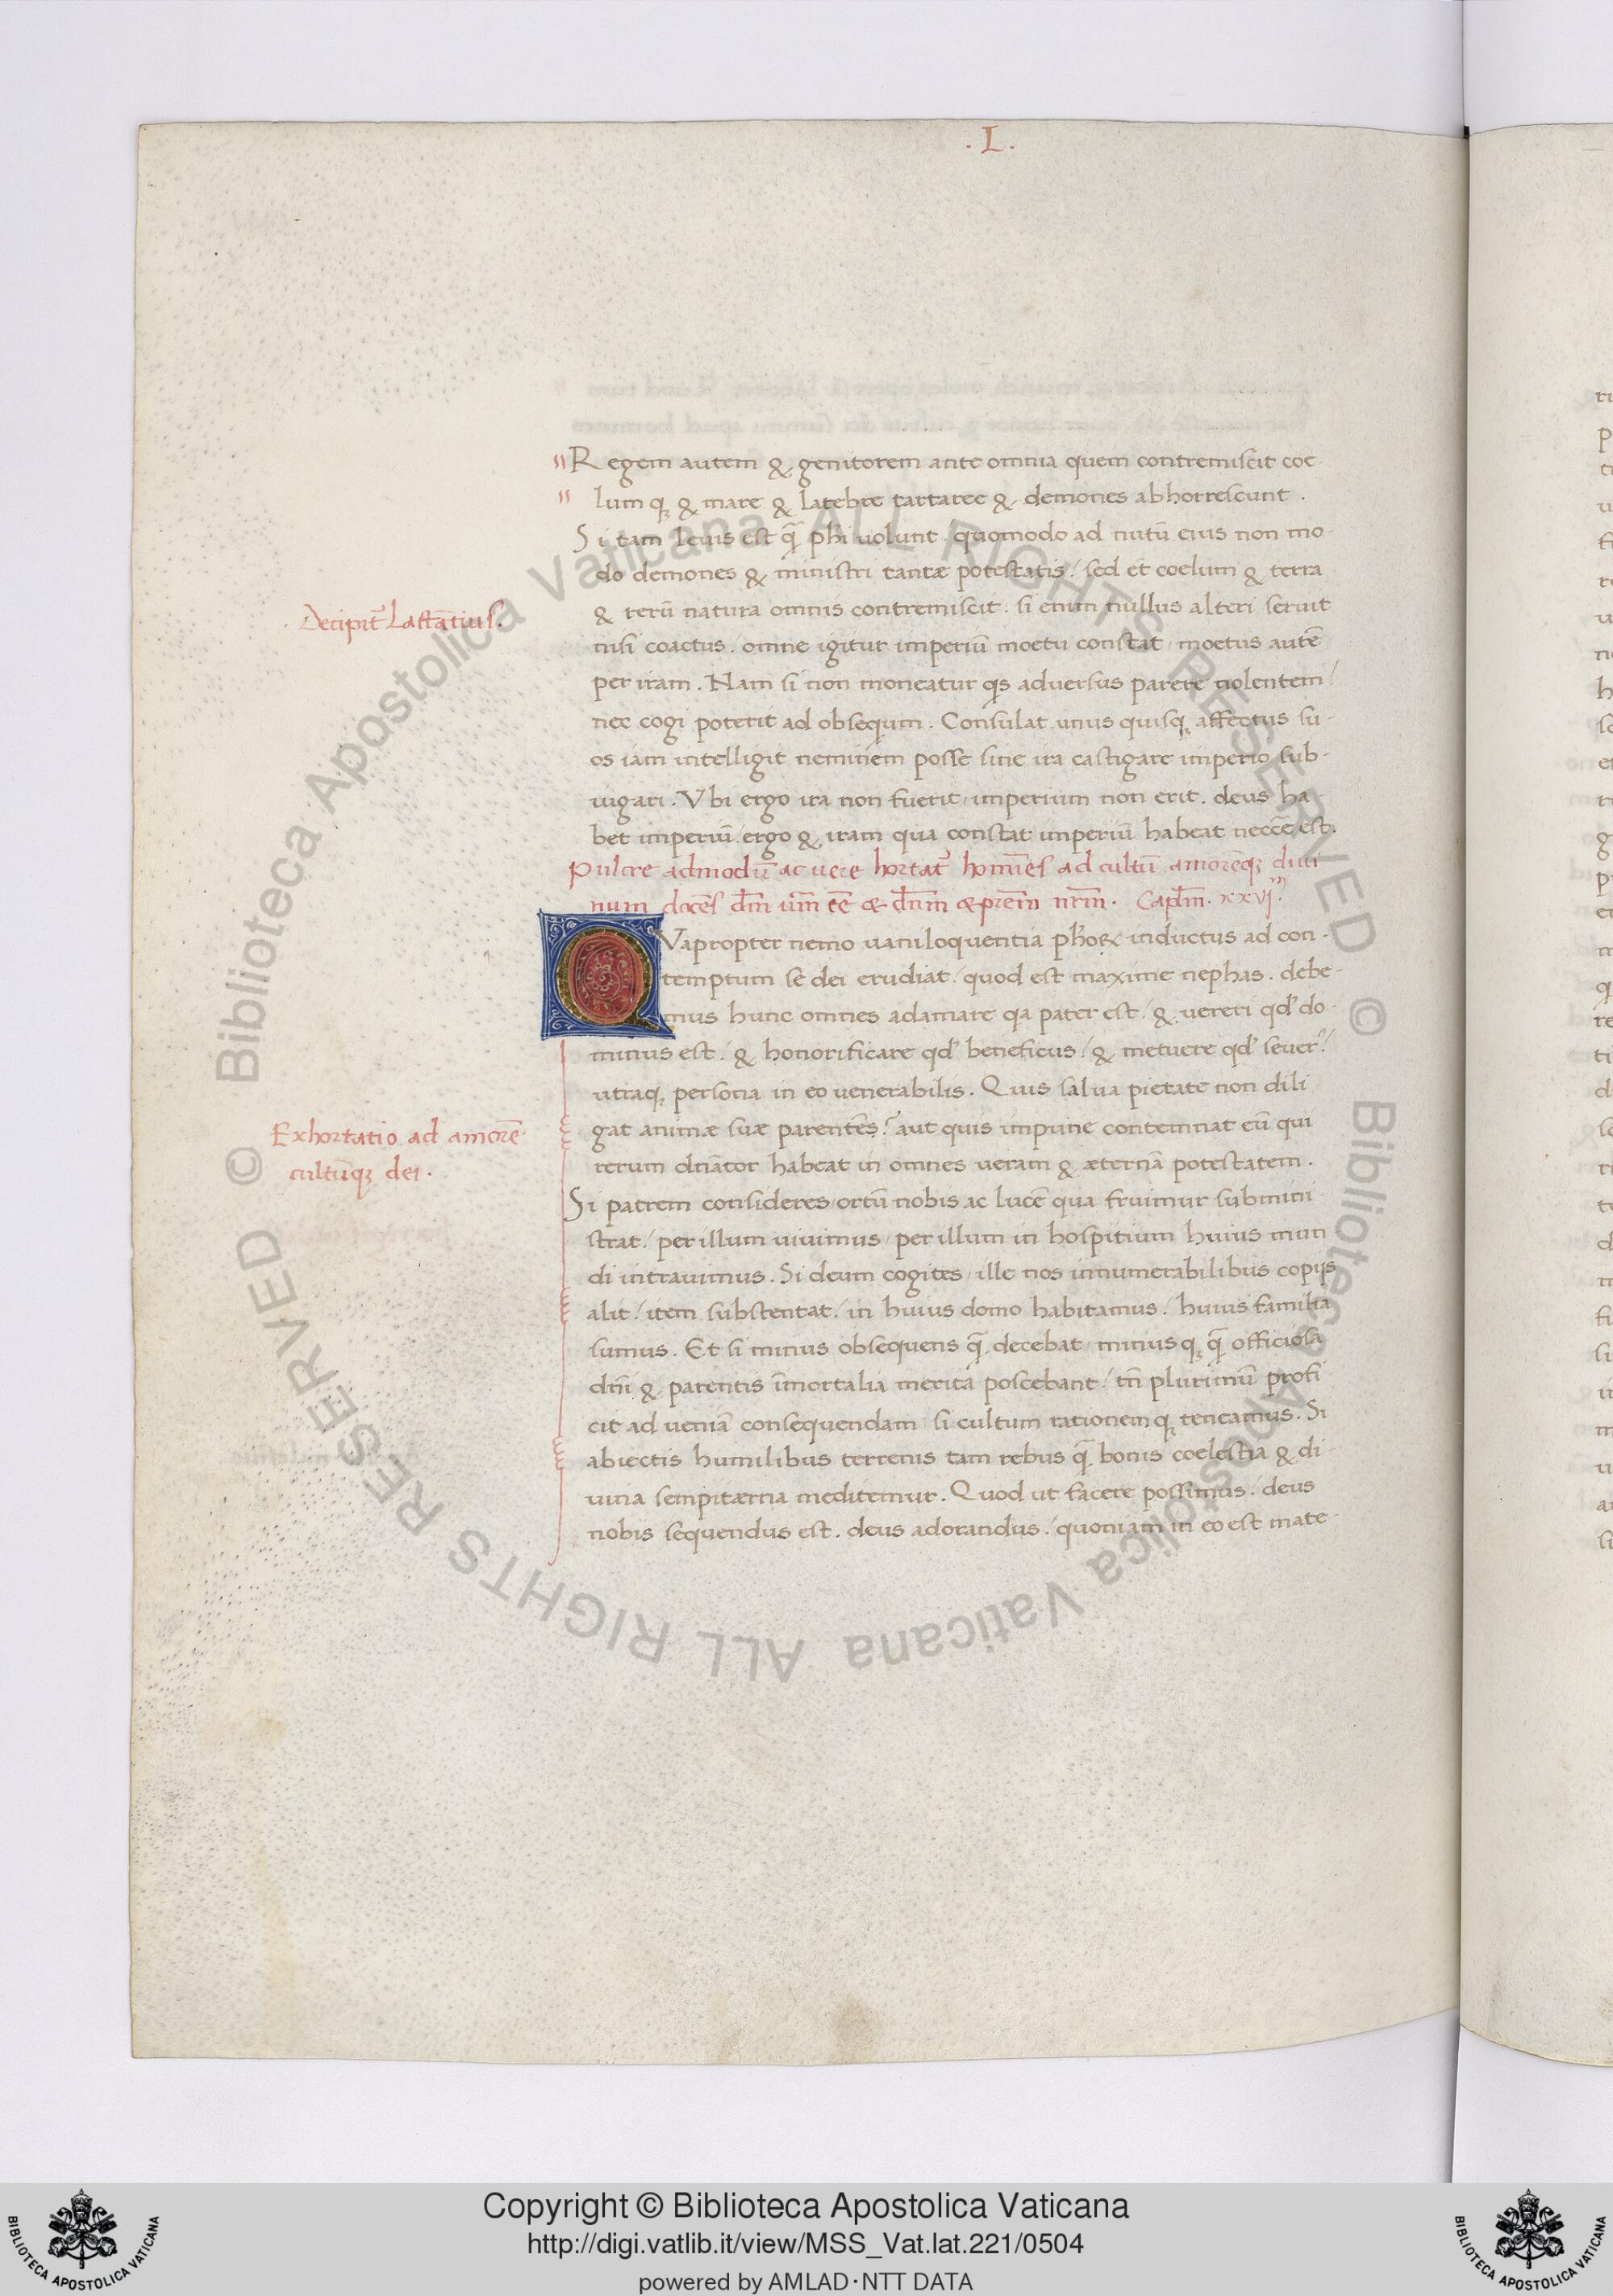 . I .
Regem autem & genitorem ante omnia quem contremiscit coe
lum q; & mare & latebre tartaree & demones abhorrescunt .
Si tam leuis est q̄ phi uolunt . quomodo ad nutū eius non mo-
do demones & ministri tantæ potestatis / sed et coelum & terra
& rerū natura omnis contremiscit . si enim nullus alteri seruit
. Decipit̄ Lactātius .
nisi coactus . omne igitur imperiū moetu constat / moetus autē
per iram . Nam si non moueatur qs aduersus parere nolentem /
nec cogi poterit ad obsequm . Consulat unus quisq; affectus su-
os iam intelligit neminem posse sine ira castigare imperio sub-
iugari . Vbi ergo ira non fuerit / imperium non erit . deus ha-
bet imperiū ergo & iram qua constat imperiū habeat necce est.
Pulcre admodū ac uere hortat̄ homīes ad cultū amorēq; diui
num docēs dm̄ um̄ eē & dn̄m & prem̄ nr̄m . Capl̄m . xxvj.m
QVapropter nemo uaniloquentia ph'oꝝ inductus ad con-
temptum se dei erudiat / quod est maxime nephas . debe-
mus hunc omnes adamare qa pater est / & uereri qd' do-
minus est / & honorificare qd' beneficus / & metuere qd' seuer' /
utraq; persona in eo uenerabilis . Quis salua pietate non dili
gat animæ suæ parentēs ? aut quis impune contemnat eū qui
Exhortatio ad amorē
cultūq; dei .
rerum dn̄ator habeat in omnes ueram & æternā potestatem .
Si patrem consideres / ortū nobis ac lucē qua fruimur submini
strat / per illum uiuimus / per illum in hospitium huius mun
di intrauimus . Si deum cogites / ille nos innumerabilibus copijs
alit / item substentat / in huius domo habitamus / huius familia
sumus . Et si minus obsequens q̄ decebat / minus q; q̄ officiosa
dn̄i & parentis īmortalia merita poscebant / tn̄ plurimū profi
cit ad ueniā consequendam si cultum rationem q; teneamus . Si
abiectis humilibus terrenis tam rebus q̄ bonis coelestia & di-
uina sempitærna meditemur . Quod ut facere possimus / deus
nobis sequendus est . deus adorandus / quoniam in eo est mate-
Copyright © Biblioteca Apostolica Vaticana
http://digi.vatlib.it/view/MSS_Vat.lat.221/0504
powered by AMLAD · NTT DATA
BIBLIOTECA APOSTOLICA VATICANA
BIBLIOTECA APOSTOLICA VATICANA
© Biblioteca Apostolica Vaticana ALL RIGHTS RESERVED © Biblioteca Apostolica Vaticana ALL RIGHTS RESERVED